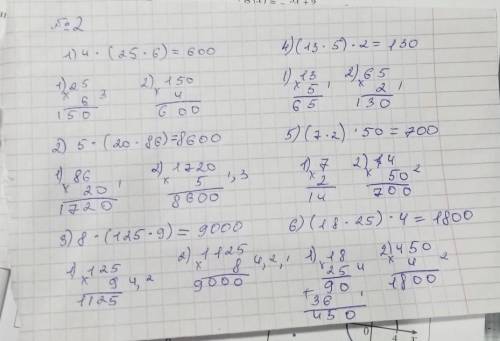 №2
1) 4 · (25 · 6) = 600
1) 25
× 6 3
150
2) 150
× 4
600
2) 5 · (20 · 86) = 8600
1) 86
× 20 1
1720
2) 1720
× 5 1,3
8600
3) 8 · (125 · 9) = 9000
1) 125
× 9 4,2
1125
2) 1125
× 8 4,2,1
9000
4) (13 · 5) · 2 = 130
1) 13
× 5 1
65
2) 65
× 2 1
130
5) (7 · 2) · 50 = 700
1) 7
× 2
14
2) 14
× 50 2
700
6) (18 · 25) · 4 = 1800
1) 18
× 25 4
90
+ 36 1
450
2) 450
× 4 2
1800